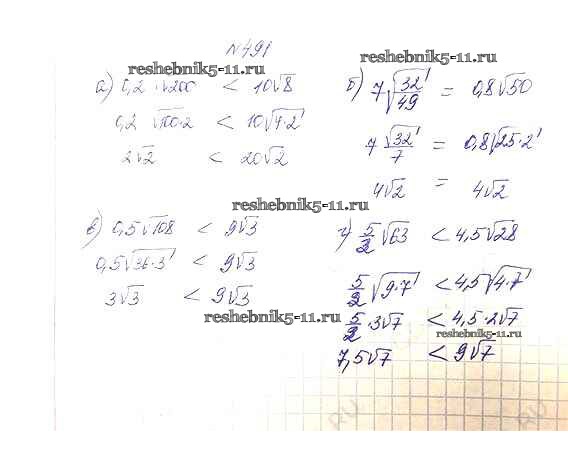 №491
reshebnik5-11.ru
а) 0,2 √200 < 10√8
0,2 √100·2 < 10√4·2
2√2 < 20√2
reshebnik5-11.ru
б) 7√32/49 = 0,8√50
7 √32/7 = 0,8√25·2
4√2 = 4√2
reshebnik5-11.ru
в) 0,5√108 < 9√3
0,5√36·3 < 9√3
3√3 < 9√3
reshebnik5-11.ru
г) 5/2 √63 < 4,5√28
5/2 √9·7 < 4,5√4·7
5/2 · 3√7 < 4,5·2√7
reshebnik5-11.ru
7,5√7 < 9√7
RU
RU